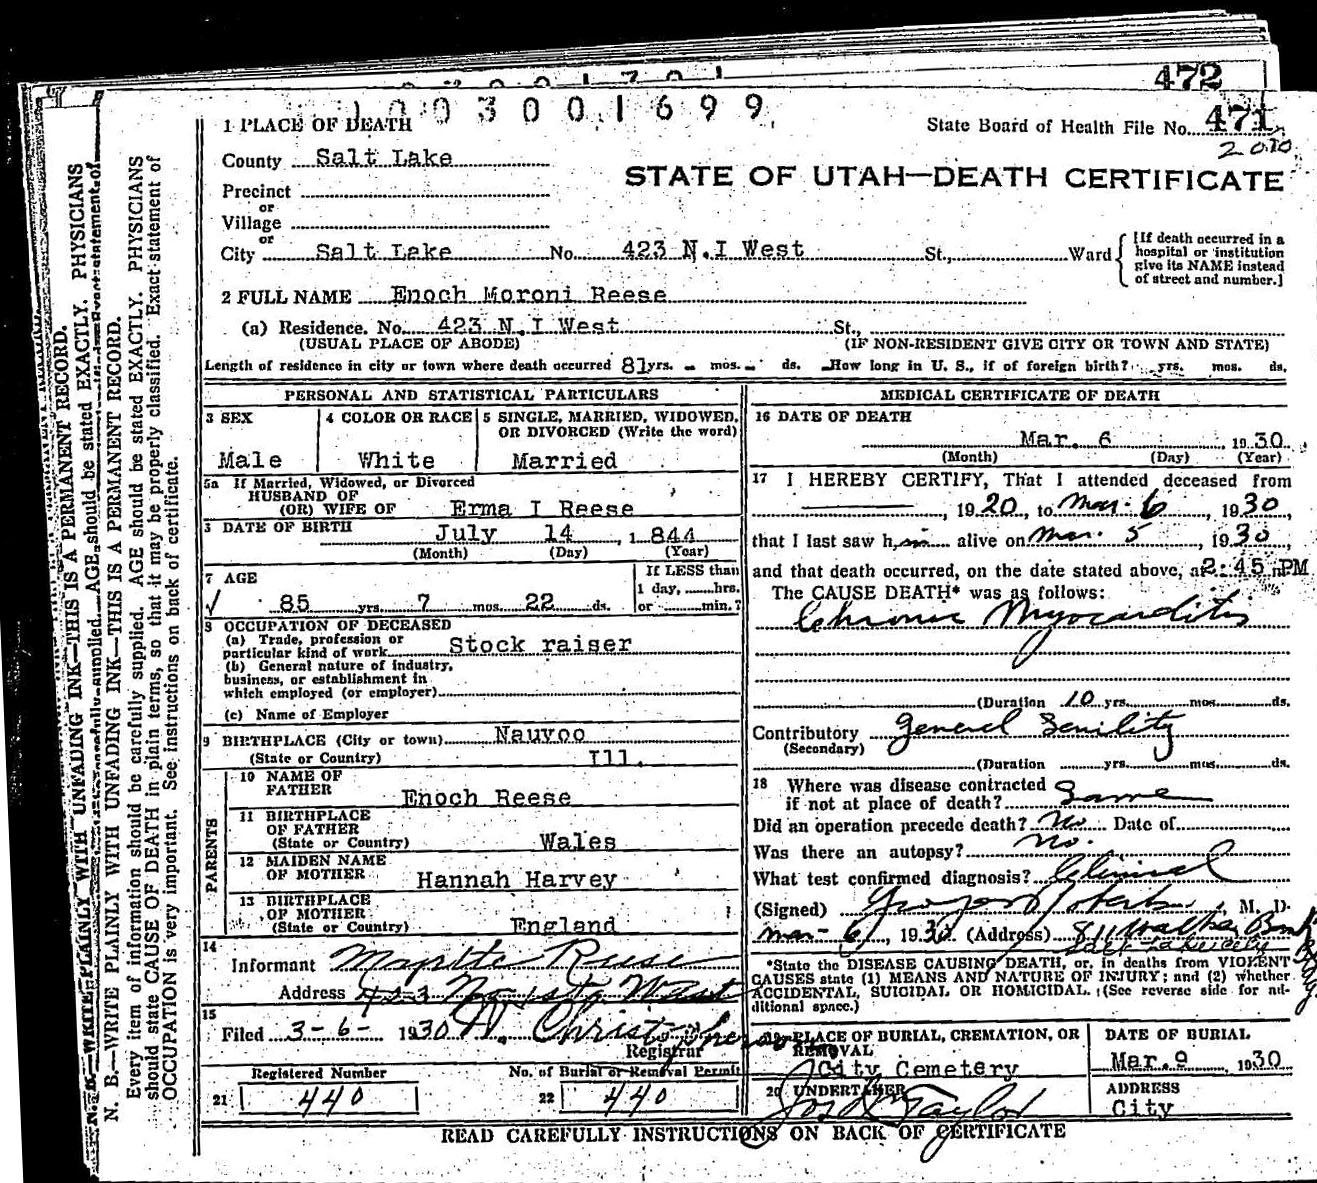 472
1003001699
471
State Board of Health File No.
2010
1 PLACE OF DEATH
County Salt Lake
STATE OF UTAH—DEATH CERTIFICATE
Precinct
or
Village
or
City Salt Lake No. 423 N.I West St., Ward
[If death occurred in a
hospital or institution
give its NAME instead
of street and number.]
2 FULL NAME Enoch Moroni Reese
(a) Residence. No. 423 N.I West St.,
(USUAL PLACE OF ABODE) (IF NON-RESIDENT GIVE CITY OR TOWN AND STATE)
Length of residence in city or town where death occurred 81 yrs. - mos. - ds. How long in U. S., if of foreign birth? yrs. mos. ds.
PERSONAL AND STATISTICAL PARTICULARS
3 SEX
Male
4 COLOR OR RACE
White
5 SINGLE, MARRIED, WIDOWED,
OR DIVORCED (Write the word)
Married
5a If Married, Widowed, or Divorced
HUSBAND OF
(OR) WIFE OF Erma I Reese
DATE OF BIRTH July 14, 1844
(Month) (Day) (Year)
7 AGE
85 yrs. 7 mos. 22 ds.
If LESS than
1 day, hrs.
or min.?
8 OCCUPATION OF DECEASED
(a) Trade, profession or
particular kind of work Stock raiser
(b) General nature of industry,
business, or establishment in
which employed (or employer)
(c) Name of Employer
9 BIRTHPLACE (City or town) Nauvoo
(State or Country) Ill.
PARENTS
10 NAME OF
FATHER Enoch Reese
11 BIRTHPLACE
OF FATHER
(State or Country) Wales
12 MAIDEN NAME
OF MOTHER Hannah Harvey
13 BIRTHPLACE
OF MOTHER
(State or Country) England
14
Informant Myrtle Reese
Address 423 No 1st West
15
Filed 3-6- 1930
Registrar
Registered Number
21 440
No. of Burial or Removal Permit
22 440
MEDICAL CERTIFICATE OF DEATH
16 DATE OF DEATH
Mar. 6, 1930
(Month) (Day) (Year)
17 I HEREBY CERTIFY, That I attended deceased from
, 1920, to Mar. 6, 1930,
that I last saw him alive on Mar. 5, 1930,
and that death occurred, on the date stated above, at 2:45 PM
The CAUSE DEATH* was as follows:
Chronic Myocarditis
(Duration 10 yrs. mos. ds.
Contributory General Senility
(Secondary)
(Duration yrs. mos. ds.
18 Where was disease contracted
if not at place of death? Same
Did an operation precede death? No Date of
Was there an autopsy? No.
What test confirmed diagnosis? Clinical
(Signed) , M. D.
Mar- 6, 1930 (Address) 811 Walker Bank
Salt Lake City
*State the DISEASE CAUSING DEATH, or, in deaths from VIOLENT
CAUSES state (1) MEANS AND NATURE OF INJURY; and (2) whether
ACCIDENTAL, SUICIDAL OR HOMICIDAL. (See reverse side for ad-
ditional space.)
19 PLACE OF BURIAL, CREMATION, OR
REMOVAL
City Cemetery
DATE OF BURIAL
Mar. 9 1930
20 UNDERTAKER
Taylor
ADDRESS
City
READ CAREFULLY INSTRUCTIONS ON BACK OF CERTIFICATE
N. B.—WRITE PLAINLY WITH UNFADING INK—THIS IS A PERMANENT RECORD.
Every item of information should be carefully supplied. AGE should be stated EXACTLY. PHYSICIANS
should state CAUSE OF DEATH in plain terms, so that it may be properly classified. Exact statement of
OCCUPATION is very important. See instructions on back of certificate.